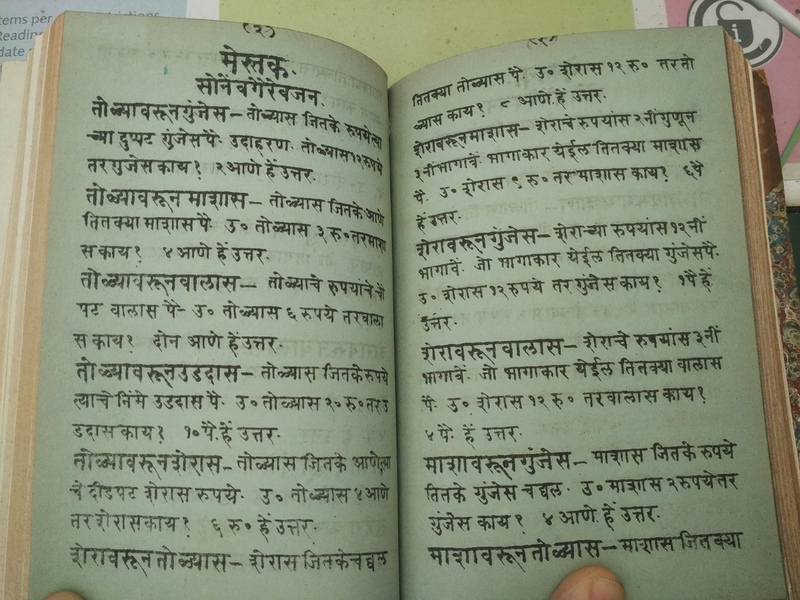 tems per
Reading
date
(८)
मेस्तक.
सोनें वगैरे वजन.
तोळ्यावरून गुंजेस— तोळ्यास जितके रुपये त्या
च्या दुप्पट गुंजेस पै. उदाहरण. तोळ्यास १२ रुपये
तर गुंजेस काय? २ आणे हें उत्तर.
तोळ्यावरून माशास— तोळ्यास जितके आणे
तितक्या माशास पै. उ० तोळ्यास ३ रु० तर माशा
स काय? ४ आणे हें उत्तर.
तोळ्यावरून वालास— तोळ्याचे रुपयांचे चौ
पट वालास पै— उ० तोळ्यास ६ रुपये तर वाला
स काय? दोन आणे हें उत्तर.
तोळ्यावरून उडदास— तोळ्यास जितके रुपये
त्याचे निमे उडदास पै. उ० तोळ्यास २० रु० तर उ
डदास काय? १० पै. हें उत्तर.
तोळ्यावरून शेरास— तोळ्यास जितके आणे त्या
चे दीडपट शेरास रुपये. उ० तोळ्यास ४ आणे
तर शेरास काय? ६ रु० हें उत्तर.
शेरावरून तोळ्यास— शेरास जितके चवल
तितक्या तोळ्यास पै. उ० शेरास १२ रु० तर तो
ळ्यास काय? ८ आणे. हें उत्तर.
शेरावरून माशास— शेराचे रुपयांस २ नीं गुणून
३ नीं भागावें. भागाकार येईल तितक्या माशास
पै. उ० शेरास ९ रु० तर माशास काय? ६ पै
हें उत्तर.
शेरावरून गुंजेस— शेराच्या रुपयांस १२ नीं
भागावें. जो भागाकार येईल तितक्या गुंजेस पै.
उ० शेरास १२ रुपये तर गुंजेस काय? १ पै हें
उत्तर.
शेरावरून वालास— शेराचे रुपयांस ३ नीं
भागावें. जो भागाकार येईल तितक्या वालास
पै. उ० शेरास १२ रु० तर वालास काय?
४ पै. हें उत्तर.
माशावरून गुंजेस— माशास जितके रुपये
तितके गुंजेस चवल. उ० माशास २ रुपये तर
गुंजेस काय? ४ आणे. हें उत्तर.
माशावरून तोळ्यास— माशास जितक्या